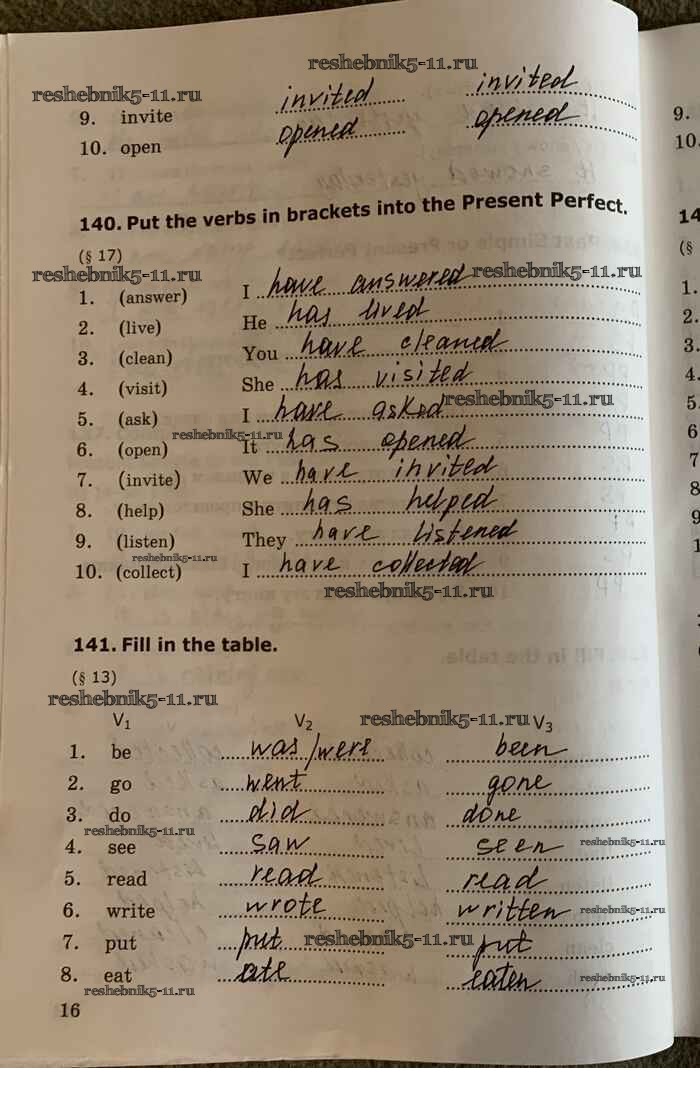 reshebnik5-11.ru
reshebnik5-11.ru
9. invite invited invited
10. open opened opened
140. Put the verbs in brackets into the Present Perfect.
(§ 17)
reshebnik5-11.ru reshebnik5-11.ru
1. (answer) I have answered
2. (live) He has lived
3. (clean) You have cleaned
4. (visit) She has visited
reshebnik5-11.ru
5. (ask) I have asked
reshebnik5-11.ru
6. (open) It has opened
7. (invite) We have invited
8. (help) She has helped
9. (listen) They have listened
reshebnik5-11.ru
10. (collect) I have collected
reshebnik5-11.ru
141. Fill in the table.
(§ 13)
reshebnik5-11.ru
V1 V2 reshebnik5-11.ru V3
1. be was/were been
2. go went gone
3. do did done
reshebnik5-11.ru reshebnik5-11.ru
4. see saw seen
5. read read read
6. write wrote written reshebnik5-11.ru
7. put put reshebnik5-11.ru put
8. eat ate eaten reshebnik5-11.ru
reshebnik5-11.ru
16
9.
10.
14
(§
1.
2.
3.
4.
5.
6
7
8
9
1